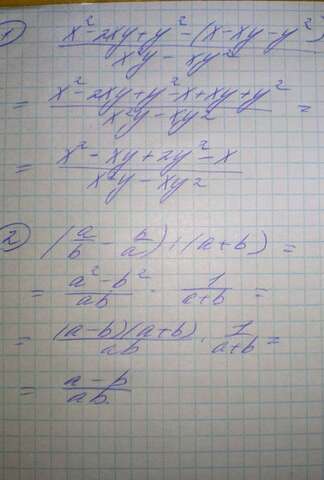 1) (x² - 2xy + y² - (x - xy - y²)) / (x²y - xy²)
= (x² - 2xy + y² - x + xy + y²) / (x²y - xy²) =
= (x² - xy + 2y² - x) / (x²y - xy²)
2) (a/b - b/a) : (a+b) =
= (a² - b²)/(ab) · 1/(a+b) =
= ((a-b)(a+b))/(ab) · 1/(a+b) =
= (a - b)/(ab)